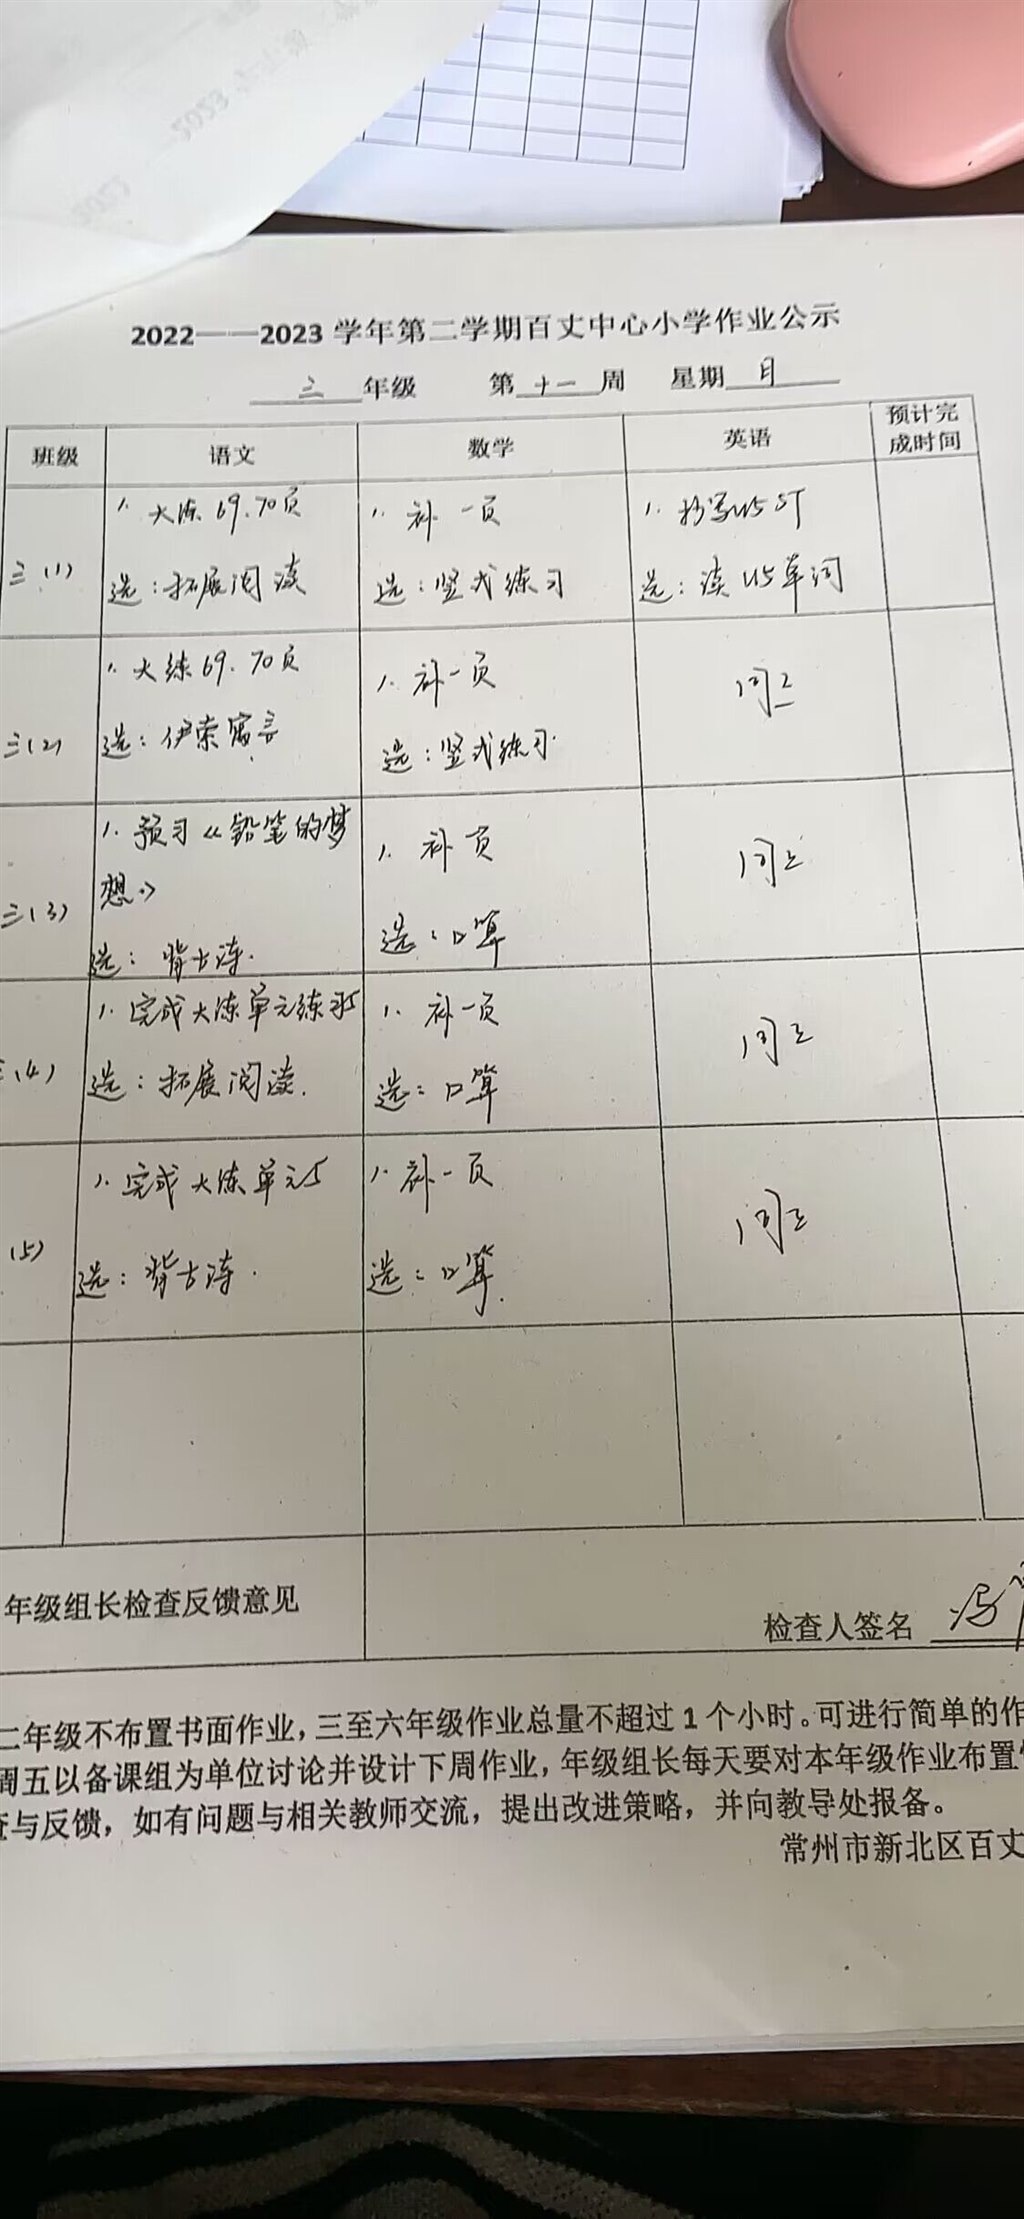 2022——2023 学年第二学期百丈中心小学作业公示
三 年级 第 十一 周 星期 日
班级 语文 数学 英语 预计完成时间
三(1)
1. 大练 69.70页
选:拓展阅读
1. 补一页
选:竖式练习
1. 抄写U5 ST
选:读U5单词
三(2)
1. 大练69.70页
选:伊索寓言
1. 补一页
选:竖式练习
同上
三(3)
1. 预习《铅笔的梦
想》
选:背古诗.
1. 补 页
选:口算
同上
(4)
1. 完成大练单元练习5
选:拓展阅读.
1. 补一页
选:口算
同上
(5)
1. 完成大练单元5
选:背古诗.
1. 补一页
选:口算.
同上
年级组长检查反馈意见
检查人签名 冯
二年级不布置书面作业，三至六年级作业总量不超过 1 个小时。可进行简单的作
周五以备课组为单位讨论并设计下周作业，年级组长每天要对本年级作业布置
查与反馈，如有问题与相关教师交流，提出改进策略，并向教导处报备。
常州市新北区百丈